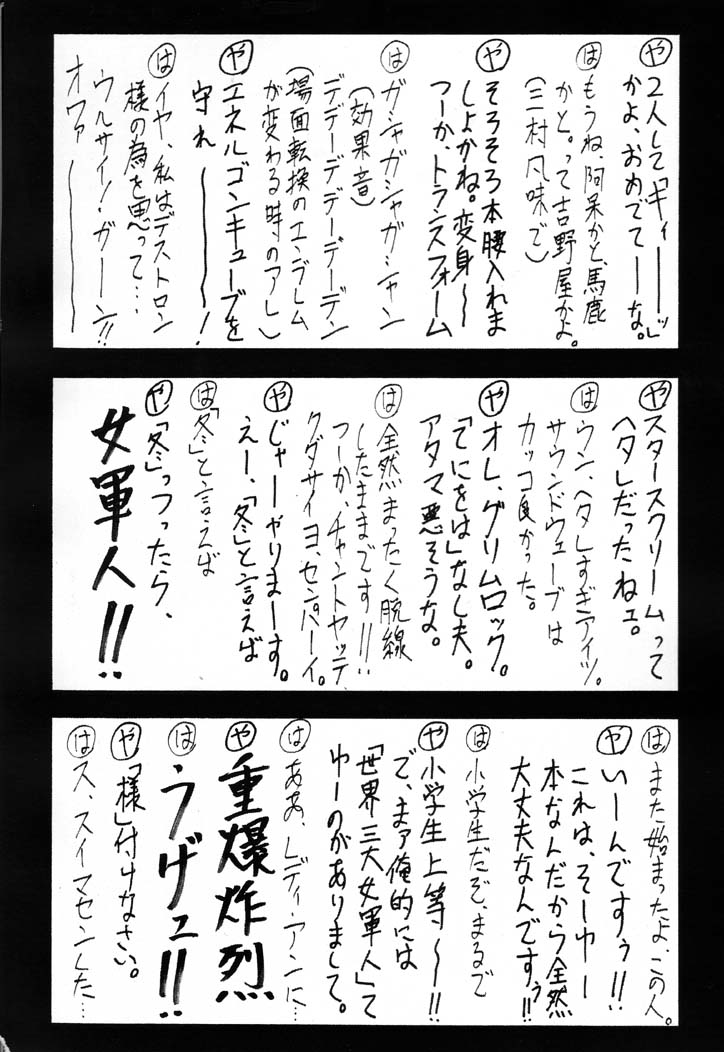 や 2人して「ギィーーーッ」
かよ、おめでてーーな。
は もうね、阿呆かと、馬鹿
かと。って吉野屋かよ。
(三村風味で)
や そろそろ本腰入れま
しょかね。変身〜
つーか、トランスフォーム
は ガシャガシャガシャン
(効果音)
デデデーデデデーデーデン
(場面転換のエンブレム
が変わる時のアレ)
や エネルゴンキューブを
守れ〜〜〜!
は イヤ、私はデストロン
様の為を思って…
ウルサイ!ガーーン!!
オワァ〜〜〜
や スタースクリームって
ヘタレだったねェ。
は ウン、ヘタレすぎアイツ。
サウンドウェーブは
カッコ良かった。
や オレ、グリムロック。
「てにをは」なし夫。
アタマ悪そうな。
は 全然まったく脱線
したままです!!!
つーか、チャントヤッテ
クダサイヨ、センパーイ。
や じゃーやりまーす。
えー、「冬」と言えば
は 「冬」と言えば
や 「冬」っつったら、
女軍人!!
は また始まったよ、この人。
や いーんですぅ!!
これは、そーゆー
本なんだから全然
大丈夫なんですぅ!!
は 小学生だぞ、まるで
や 小学生上等〜!!
で、まァ俺的には
「世界三大女軍人」て
ゆーのがありまして。
は ああ、レディ・アンに…
や 重爆炸烈
は うげェ!!
や 「様」付けなさい。
は ス、スイマセンした…